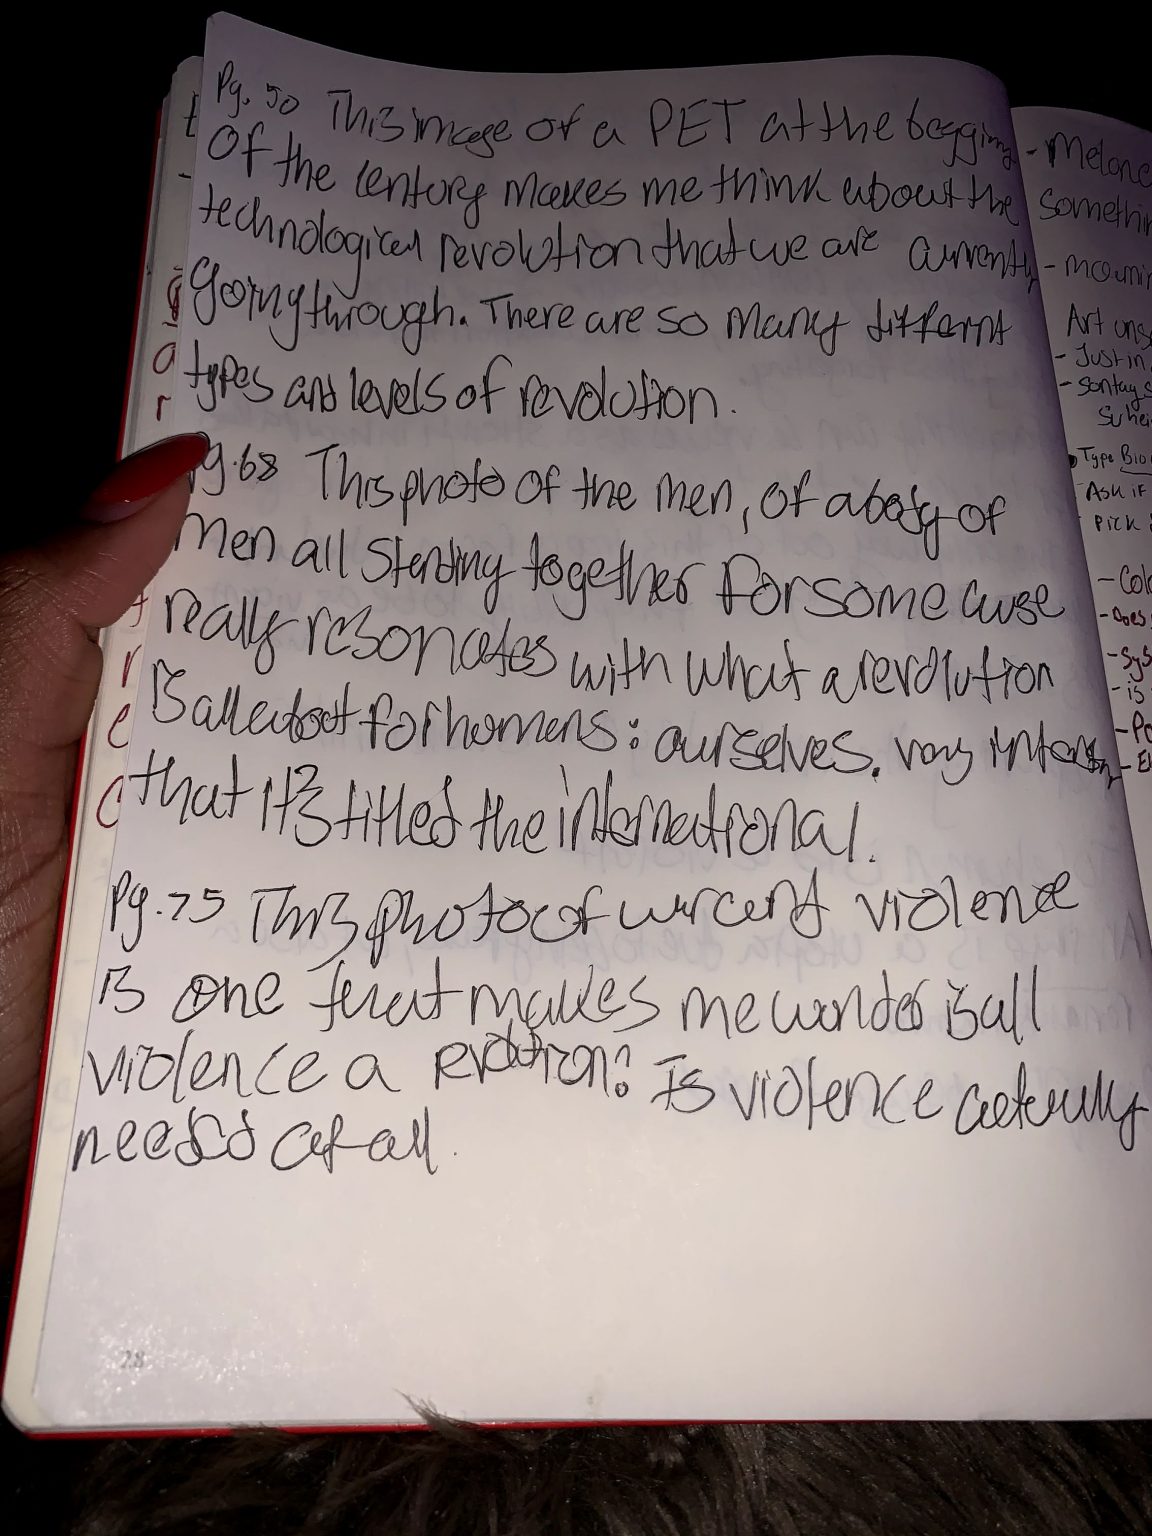 Pg. 50 This image of a PET at the beggining
Of the century makes me think about the
technological revolution that we are currently
Going through. There are so many different
types and levels of revolution.
Pg. 68 This photo of the men, of a body of
men all standing together for some cause
really resonates with what a revolution
is all about for humans: ourselves. very
that it's titled the international.
Pg. 75 This photo of violence
is one that makes me wonder is all
violence a revolution? Is violence actually
needed at all.
28
- Melanc
Somethin
- mournin
Art
- Justin
- Sontag s
• Type Bio
- Ask if
Pick
- Colo
- Does
- Sys
- is
- Po
- E
a
r
r
e
c